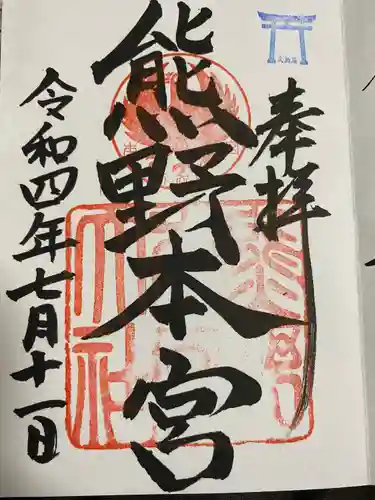 奉拝
熊野本宮
令和四年七月十一日